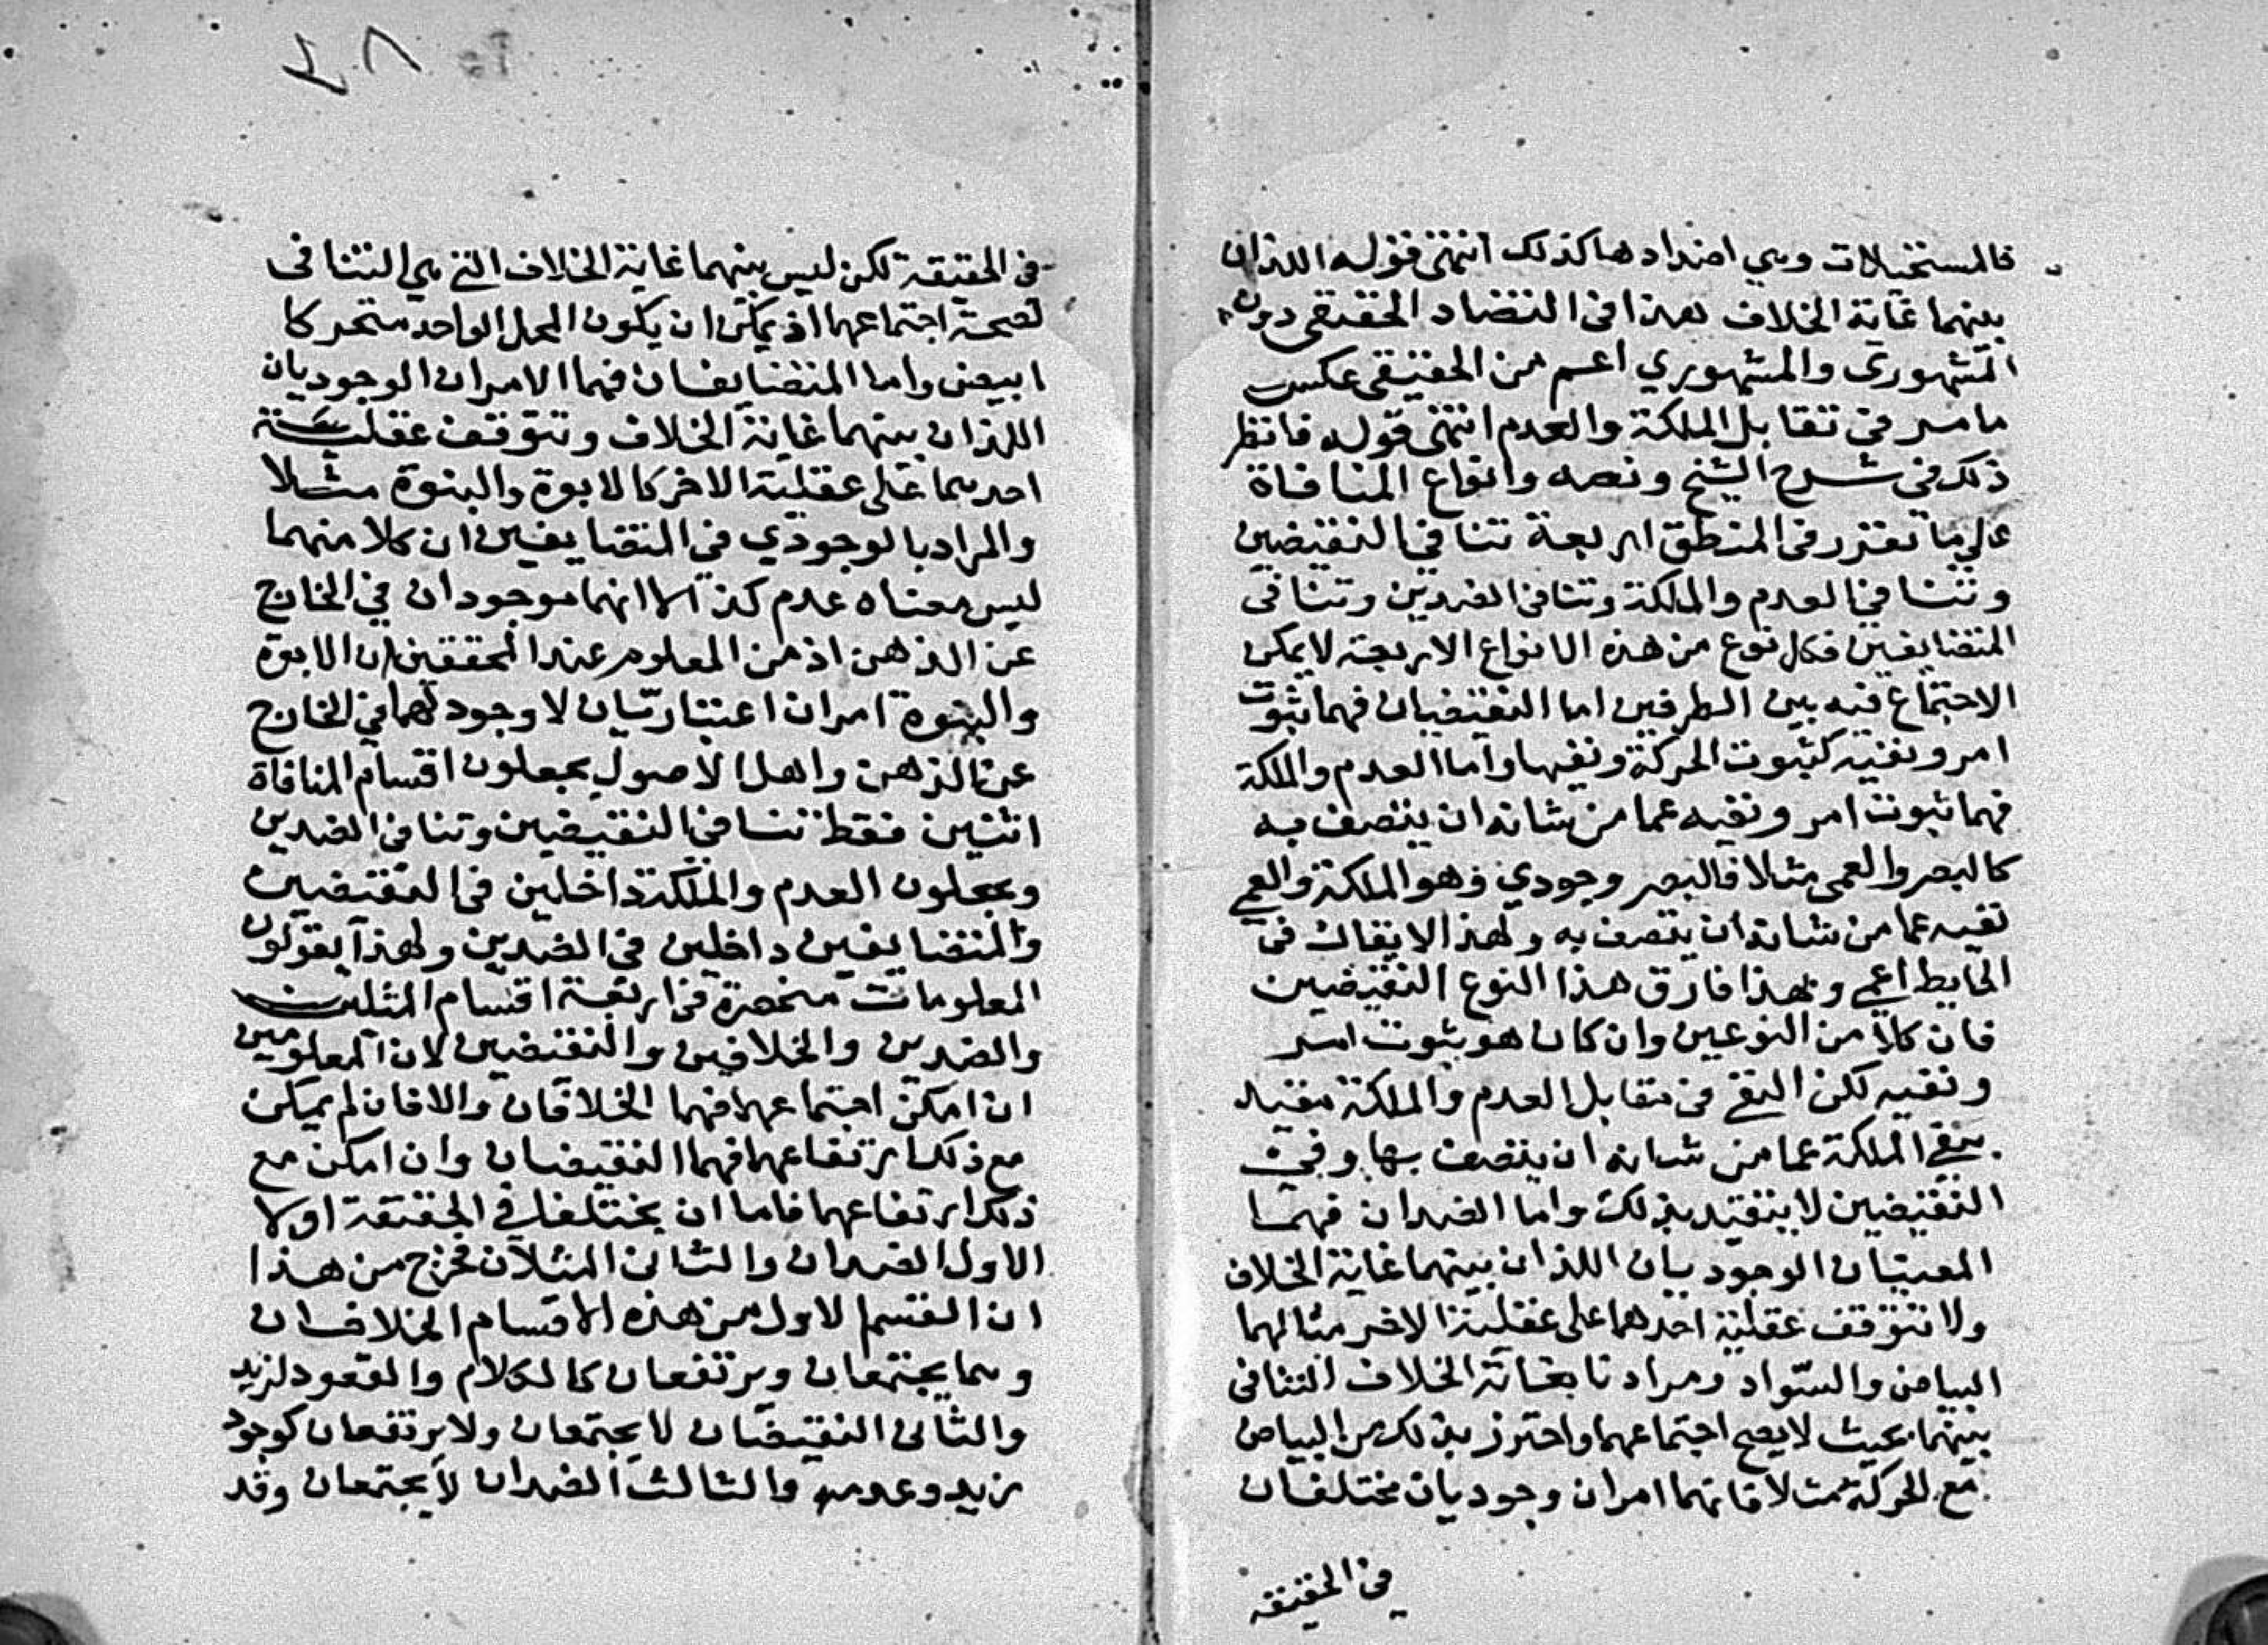 فالمستحيلات وهي اضدادها كذلك انتهى قوله اللذان
بينهما غاية الخلاف هذا في التضاد الحقيقي دون
المشهوري والمشهوري اعم من الحقيقي عكس
ما مر في تقابل الملكة والعدم انتهى قوله فانظر
ذلك في شرح الشيخ ونصه وانواع المنافاة
على ما تقرر في المنطق اربعة تنافي النقيضين
وتنافي العدم والملكة وتنافي الضدين وتنافي
المتضايفين فكل نوع من هذه الانواع الاربعة لا يمكن
الاجتماع فيه بين الطرفين اما النقيضان فهما ثبوت
امر ونفيه كثبوت الحركة ونفيها واما العدم والملكة
فهما ثبوت امر ونفيه عما من شانه ان يتصف به
كالبصر والعمى مثلا فالبصر وجودي وهو الملكة والعمى
نفيه عما من شانه ان يتصف به ولهذا لا يقال في
الحايط اعمى وبهذا فارق هذا النوع النقيضين
فان كلا من النوعين وان كان هو بثبوت امر
ونفيه لكن النفي في تقابل العدم والملكة مقيد
بنفي الملكة عما من شانه ان يتصف بها وفي
النقيضين لا يتقيد بذلك واما الضدان فهما
المعنيان الوجوديان اللذان بينهما غاية الخلاف
ولا تتوقف عقلية احدهما على عقلية الاخر مثالهما
البياض والسواد ومرادنا بغاية الخلاف التنافي
بينهما بحيث لا يصح اجتماعهما واحترز بذلك من البياض
مع الحركة مثلا فانهما امران وجوديان مختلفان
في الحقيقة
٤٨
في الحقيقة لكن ليس بينهما غاية الخلاف التي هي التنافي
لصحة اجتماعهما اذ يمكن ان يكون المحل الواحد متحركا
ابيض واما المتضايفان فهما الامران الوجوديان
اللذان بينهما غاية الخلاف وتتوقف عقلية
احدهما على عقلية الاخر كالابوة والبنوة مثلا
والمراد بالوجودي في المتضايفين ان كلا منهما
ليس معناه عدم كذا لا انهما موجودان في الخارج
عن الذهن اذ من المعلوم عند المحققين ان الابوة
والبنوة امران اعتباريان لا وجود لهما في الخارج
عن الذهن واهل الاصول يجعلون اقسام المنافاة
اثنين فقط تنافي النقيضين وتنافي الضدين
ويجعلون العدم والملكة داخلين في النقيضين
والمتضايفين داخلين في الضدين ولهذا يقولون
المعلومات منحصرة في اربعة اقسام المثلين
والضدين والخلافين والنقيضين لان المعلومين
ان امكن اجتماعهما فهما الخلافان والا فان لم يمكن
مع ذلك ارتفاعهما فهما النقيضان وان امكن مع
ذلك ارتفاعهما فاما ان يختلفا في الحقيقة اولا
الاول الضدان والثاني المثلان فخرج من هذا
ان القسم الاول من هذه الاقسام الخلافان
وهما يجتمعان ويرتفعان كالكلام والقعود لزيد
والثاني النقيضان لا يجتمعان ولا يرتفعان كوجود
زيد وعدمه والثالث الضدان لا يجتمعان وقد